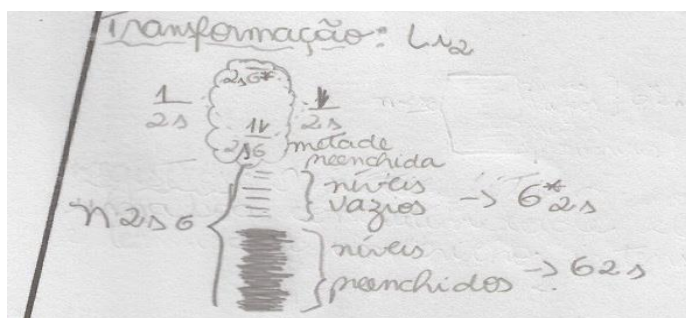 Transformação: Li2
2s6*
1 1
2s 2s
1 1
2s6 metade
preenchida
níveis
vazios -> 6*2s
n2s6
níveis
preenchidos -> 62s